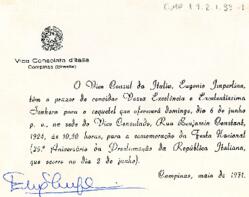 Vice Consolato d'Italia
Campinas (Brasile)
O Vice Consul da Italia, Eugenio Imperiino,
têm o prazer de convidar Vossa Excelência e Excelentíssima
Senhora para o coquetel que oferecerá domingo, dia 6 de junho
p. v. na sede do Vice Consulado, Rua Benjamin Constant,
1921, às 10,30 horas, para a comemoração da Festa Nacional
(25º Aniversário da Proclamação da República Italiana,
que ocorre no dia 2 de junho).
Campinas, maio de 1971.